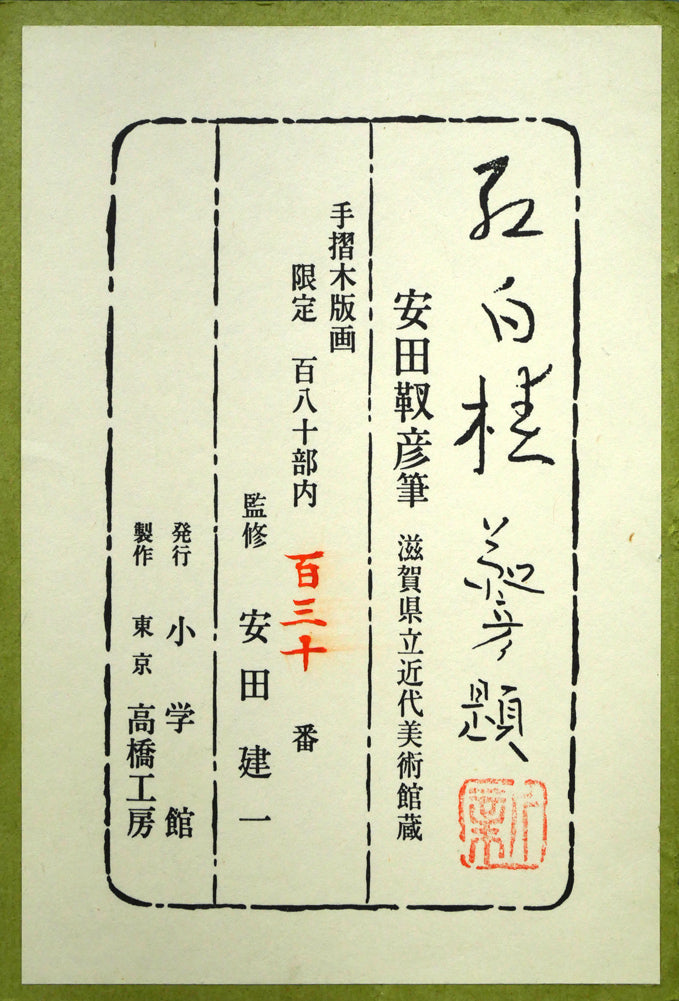 紅白 靫彦題
安田靫彦筆 滋賀県立近代美術館蔵
手摺木版画
限定 百八十部内 百三十 番
監修 安田建一
発行 小学館
製作 東京 高橋工房